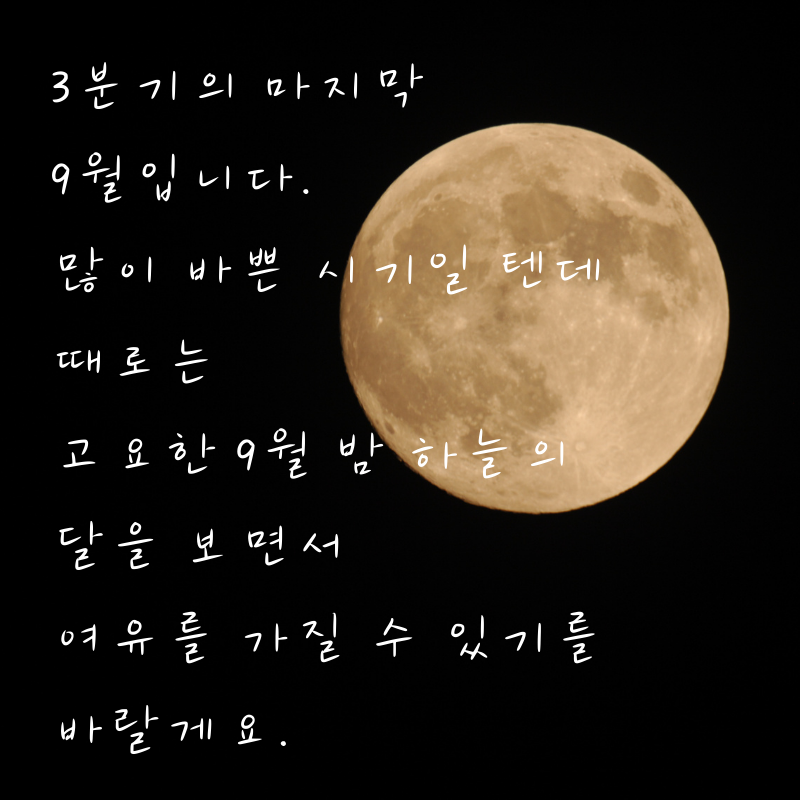 3분기의 마지막
9월입니다.
많이 바쁜 시기일 텐데
때로는
고요한 9월 밤하늘의
달을 보면서
여유를 가질 수 있기를
바랄게요.